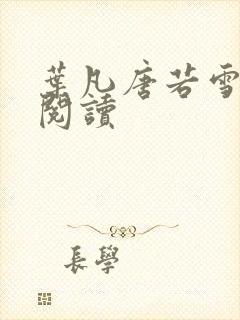 葉凡唐若雪
閱讀
長學